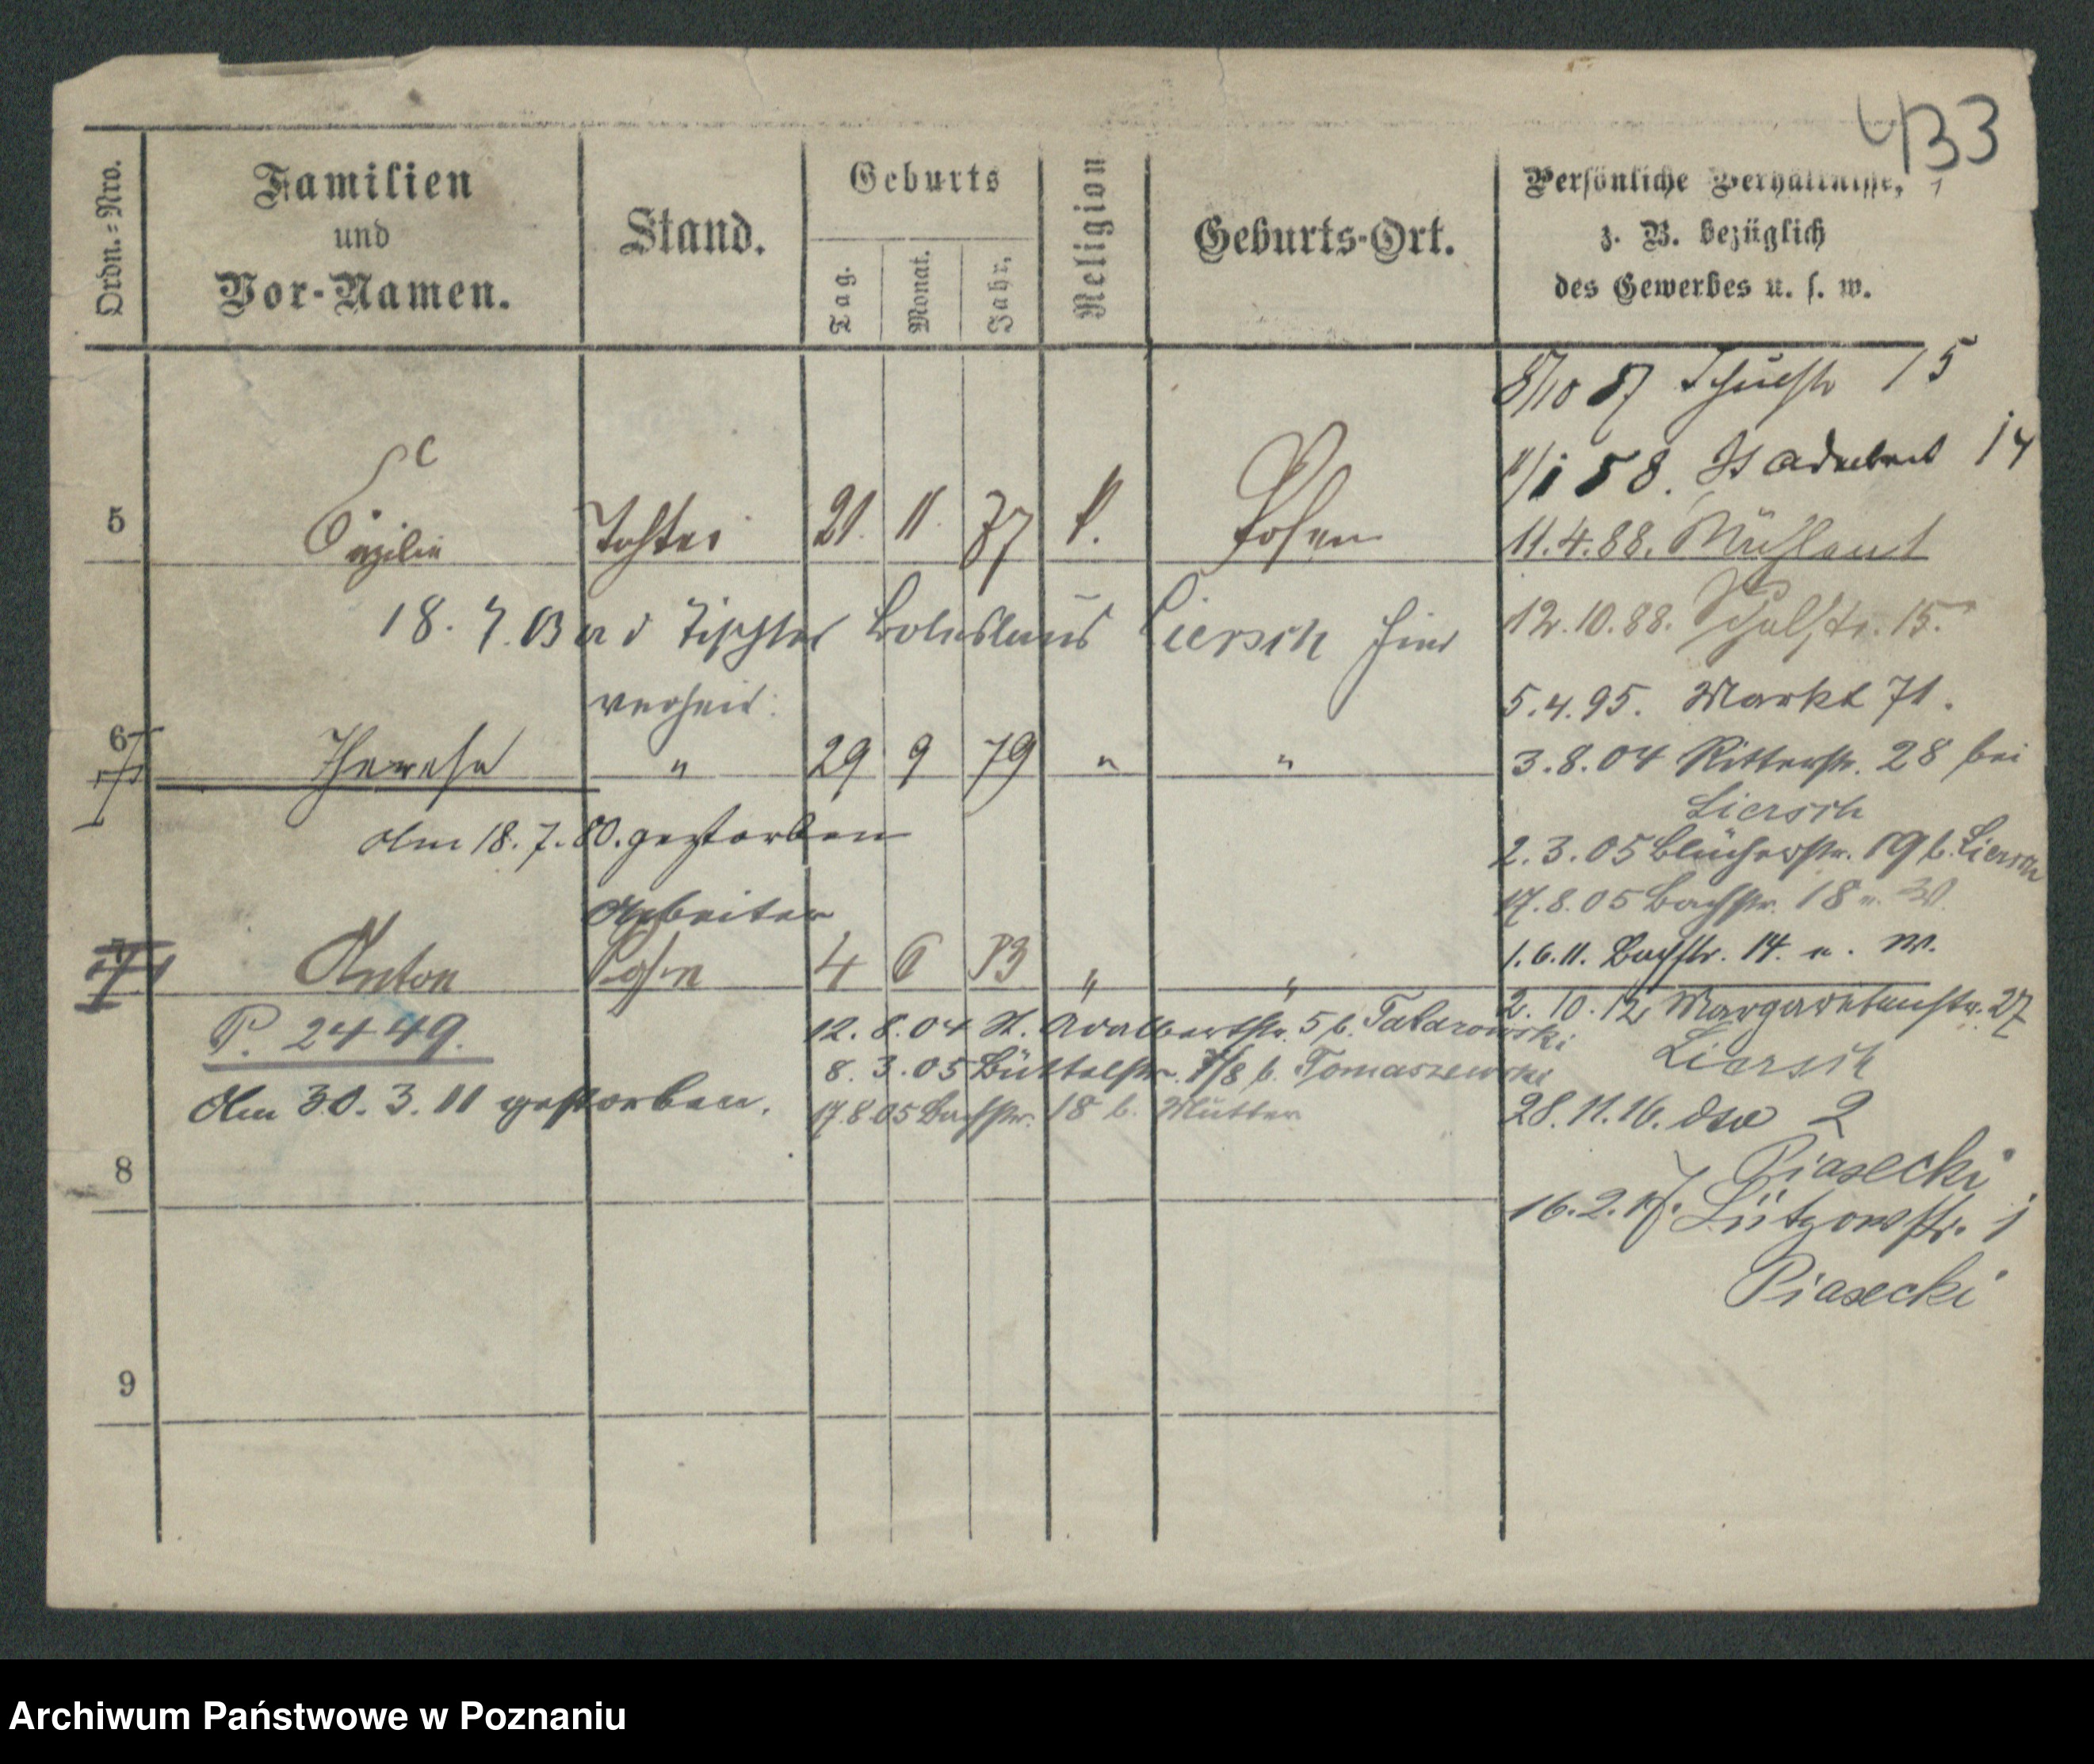 433
Ordn.=Nro.
Familien
und
Vor-Namen.
Stand.
Geburts
Tag.
Monat.
Jahr.
Religion
Geburts-Ort.
Persönliche Verhältnisse,
z. B. bezüglich
des Gewerbes u. s. w.
8/10 87 Schulstr 15
11/1 58. St Adalbert 14
5 Cäzilie Tochter 21. 11. 77 k. Posen
11.4.88. Mühlenst
18. 7. 03 a d Tischler Boleslaus Liersch hier
verheir:
12.10.88. Schulstr. 15.
5.4.95. Markt 71.
6 Therese " 29 9 79 " "
3.8.04 Ritterstr. 28 bei
Liersch
Am 18. 7. 80. gestorben
2.3.05 Blücherstr. 19 b. Liersch
17.8.05 Bachstr. 18 n. W.
Arbeiter
7 Anton Sohn 4 6 83 " "
1.6.11. Bachstr. 14. n. W.
P. 2449.
12. 8. 04 St. Adalbertstr. 5 b. Tatarowski
8. 3. 05 Büttelstr. 7/8 b. Tomaszewski
17.8.05 Bachstr. 18 b. Mutter
Am 30. 3. 11 gestorben.
2. 10. 12 Margaretenstr. 27
Liersch
28.11.16. 2
Piasecki
16.2.17. Lützowstr. 1
Piasecki
8
9
Archiwum Państwowe w Poznaniu